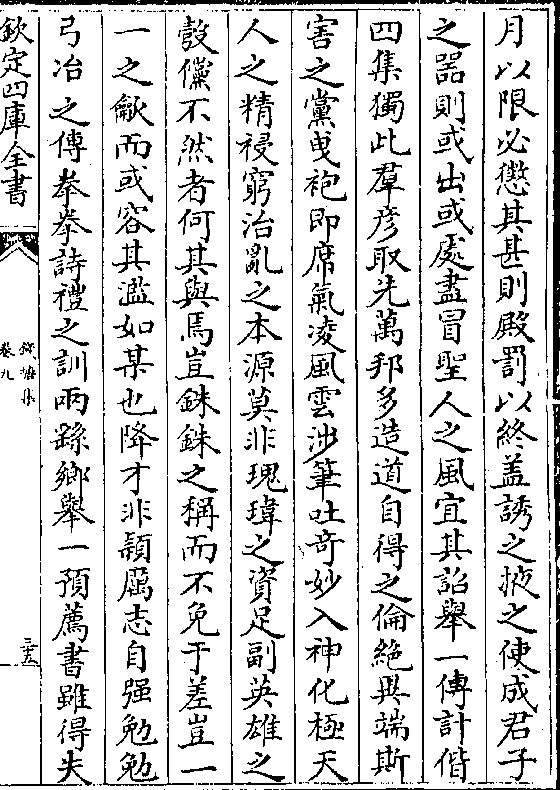 月以限必懲其甚則殿罰以終盖誘之掖之使成君子
之器則或出或處盡冒聖人之風宜其詔舉一傳計偕
四集獨此羣彦取先萬邦多造道自得之倫絶異端斯
害之黨曵袍即席氣凌風雲涉筆吐竒妙入神化極天
人之精祲窮治亂之本源莫非瑰瑋之資足副英雄之
彀儻不然者何其與焉豈銖銖之稱而不免于差豈一
一之龡而或容其濫如某也降才非頴厲志自强勉勉
弓冶之傳拳拳詩禮之訓兩繇鄉舉一預薦書雖得失
欽定四庫全書
錢塘集
卷九
三五